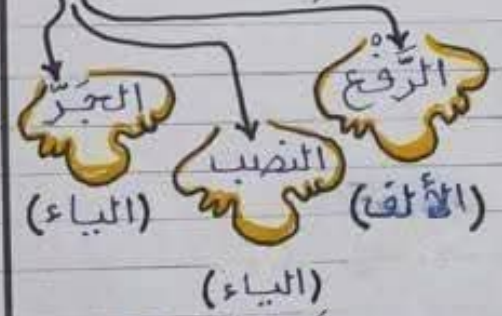 الرَّفْع
(الألف)
النصب
(الياء)
الجَرّ
(الياء)